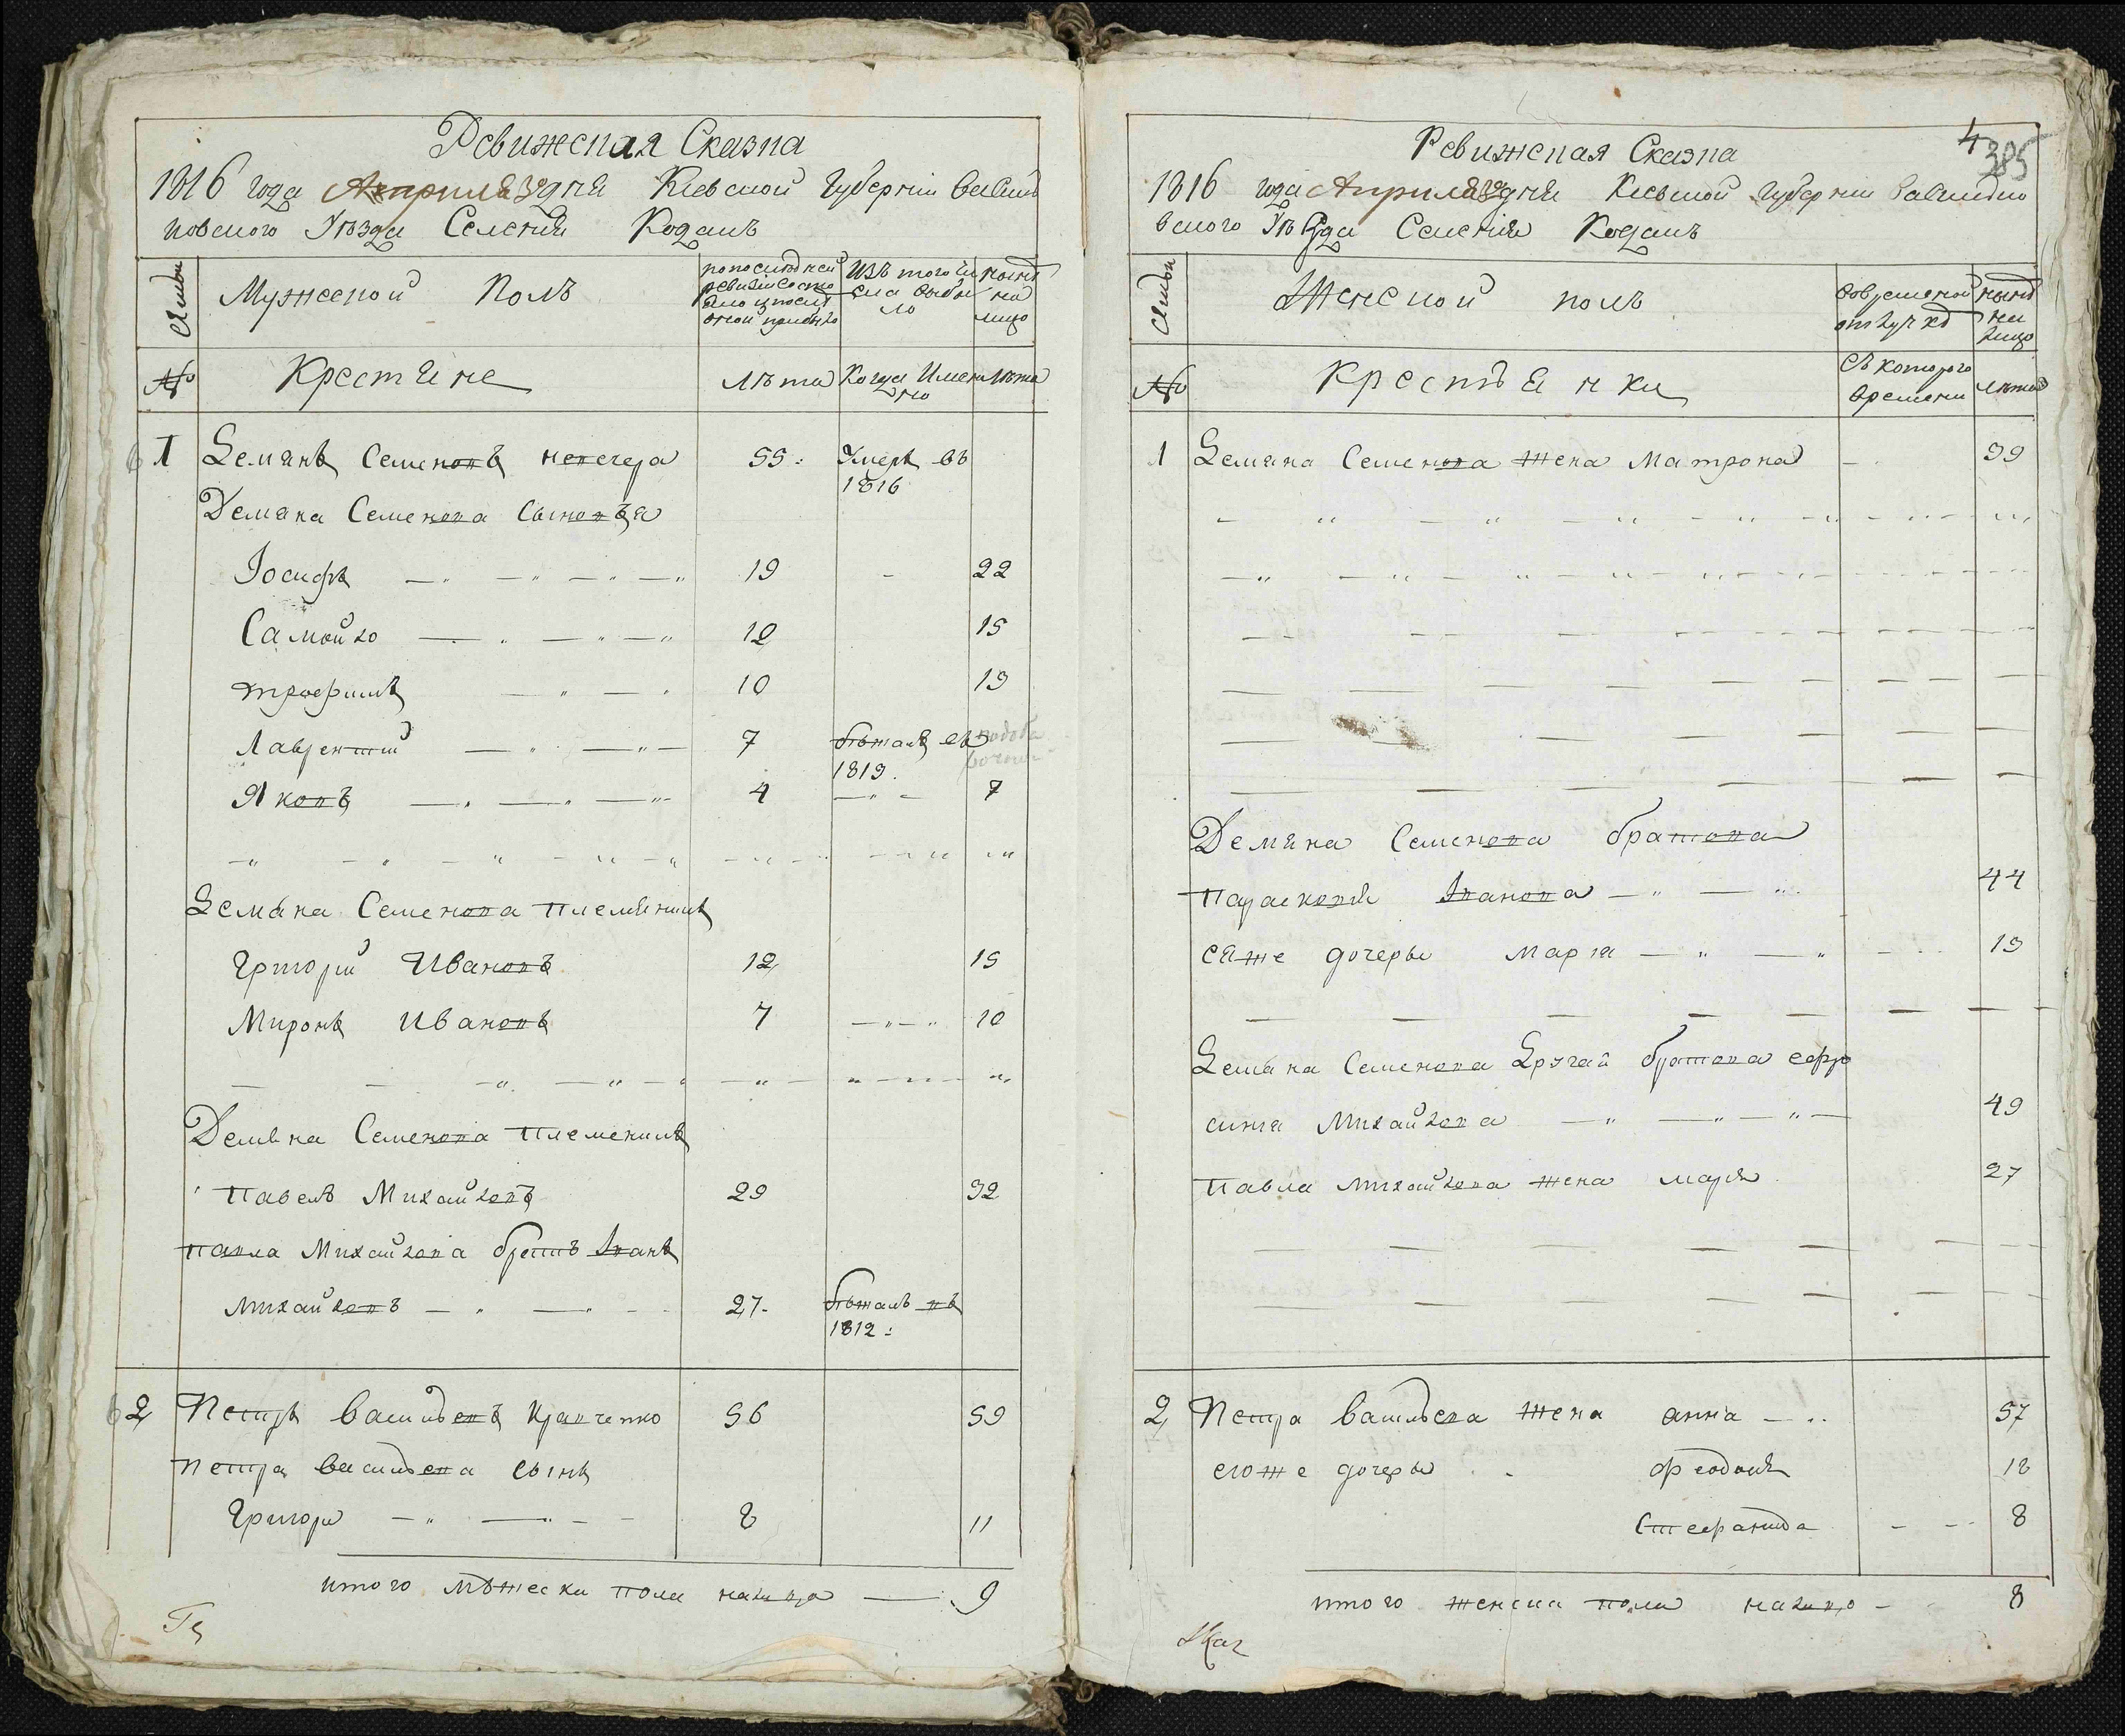 Ревижская Сказка
1816 года Априля дня Кіевской Губерніи Василь
ковского Уѣзда Селенія Коданъ
Семьи
Мужеской Полъ
по последней ревизіи состо яло и после оной прибыло
Изъ того чи сла выбы ло
ныне на лицо
№
Крестяне
Лѣта
Когда Имен но
Лѣта
1 Демянъ Семеновъ Непечера 55: Умеръ въ
1816
Демяна Семенова Сыновья
Іосифъ 19 - 22
Самойло 12 15
трофимъ 10 13
Лаврентий 7 бѣжалъ въ
1813.
Яковъ 4 7
Демяна Семенова племянники
Григорий Ивановъ 12 15
Миронъ Ивановъ 7 10
Демяна Семенова племеникъ
Павелъ Михайловъ 29 32
Павла Михайлова братъ Іванъ
Михайловъ 27. бѣжалъ въ
1812:
2 Петръ Васильевъ Кравченко 56 59
Петра Васильева сынъ
Григори 8 11
итого мѣжеска пола налицо 9
Ревижская Сказка
4
385
1816 года Априля дня Кіевской Губернии Василько
вского Уѣзда Селенія Коданъ
Семьи
Женской полъ
Во временной отлучке
ныне на лицо
№
Крестьянки
Съ которого времени
Лѣта
1 Демяна Семенова жена Матрона 39
Демяна Семенова братова
Парасковія Іванова 44
еяже дочерь Мария 13
Демяна Семенова Другая братова ефро
синия Михайлова 49
Павла Михайлова жена марія 27
2 Петра Васильева жена анна 57
егоже дочеры феодосія 12
Стефанида 8
итого женска пола налицо 8